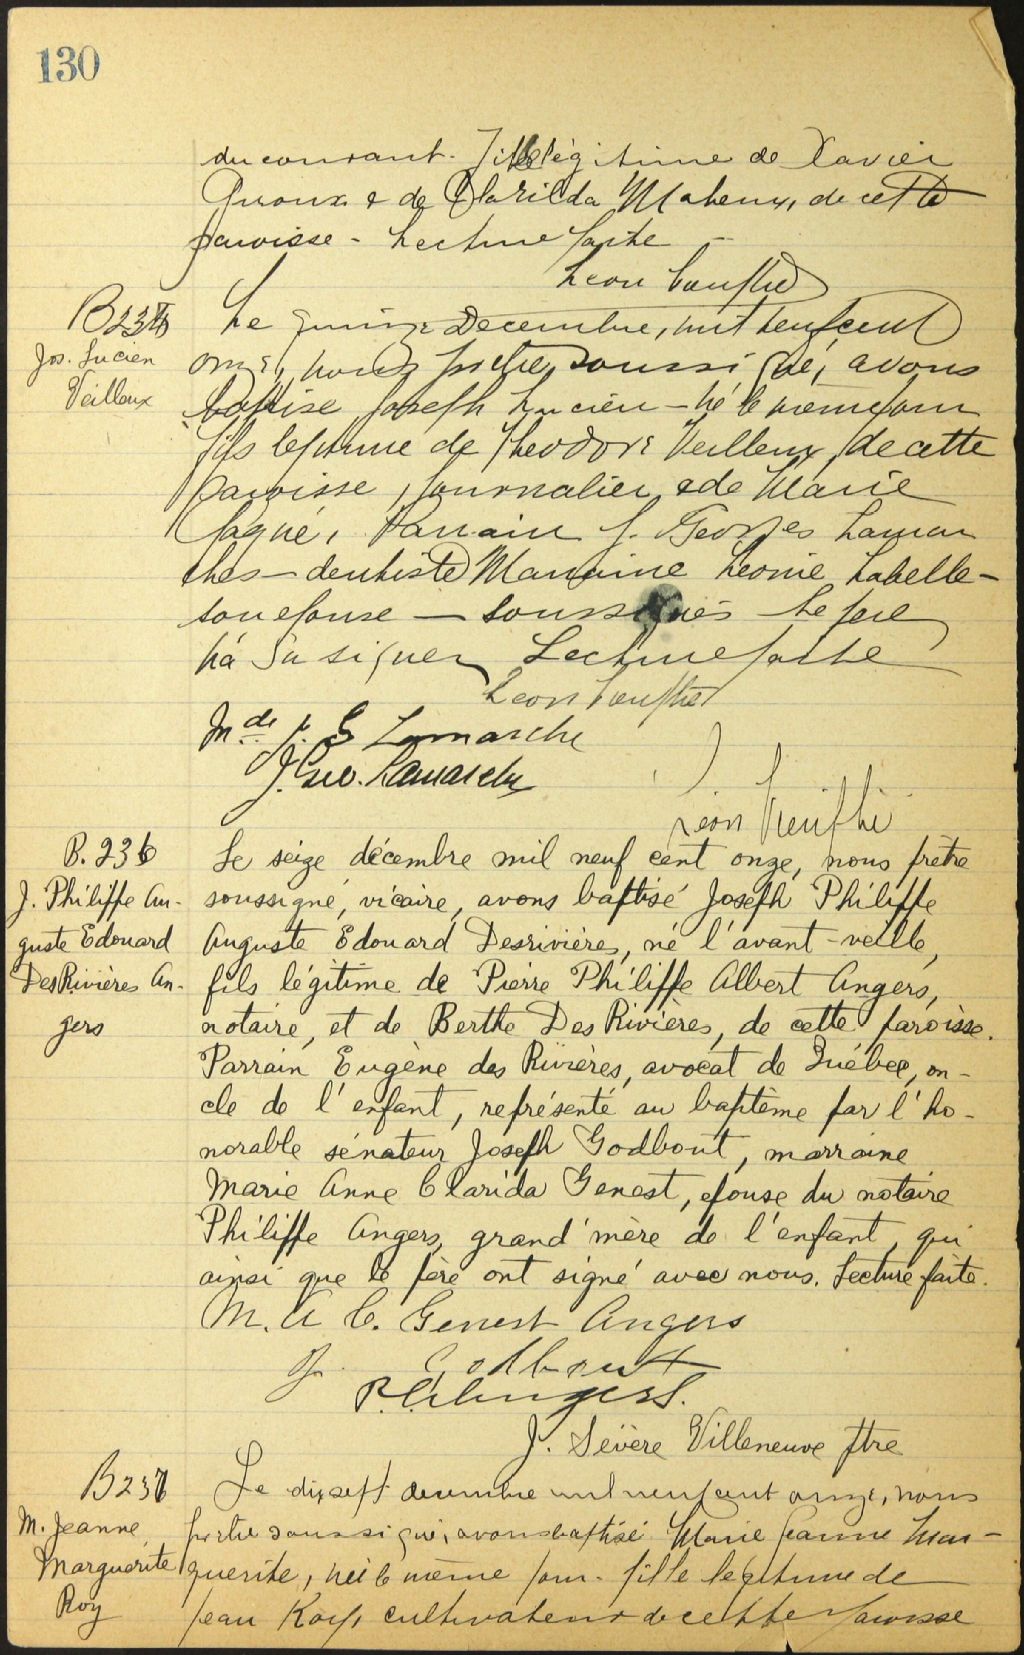 130
du courant. Fille légitime de Xavier
Giroux & de Clarilda Maheux, de cette
paroisse - Lecture faite -
B 235
Jos. Lucien
Veilleux
Le quinze Decembre, mil neuf cent
onze, nous prêtre soussigné, avons
baptise Joseph Lucien - né le même jour
fils legitime de Theodore Veilleux, de cette
paroisse, journalier, & de Marie
Gagné, Parrain J. Georges Lamar
ches - dentiste Marraine Léonie Labelle -
son epouse - soussignés - Le pere
n'a su signer, Lecture faite
Mde J. G Lamarche
J. Geo. Lamarche
Léon
B. 236
J. Philippe Au-
guste Edouard
DesRivières An-
gers
Le seize décembre mil neuf cent onze, nous prêtre
soussigné, vicaire, avons baptisé Joseph Philippe
Auguste Edouard Desrivière, né l'avant-veille,
fils légitime de Pierre Philippe Albert Angers,
notaire, et de Berthe DesRivières, de cette paroisse.
Parrain Eugène des Rivières, avocat de Québec, on-
cle de l'enfant, représenté au baptème par l'ho-
norable sénateur Joseph Godbout, marraine
Marie Anne Clarida Genest, epouse du notaire
Philippe Angers, grand'mère de l'enfant, qui
ainsi que le père ont signé avec nous. Lecture faite.
M. A C. Genest Angers
J. Godbout
P. A. Angers.
J. Sévère Villeneuve ptre
B 237
M. Jeanne
Marguerite
Roy
Le dix sept decembre mil neuf cent onze, nous
prêtre soussigné, avons baptisé Marie Jeanne Mar-
guerite, née le même jour. fille légitime de
Jean Roy, cultivateur de cette paroisse